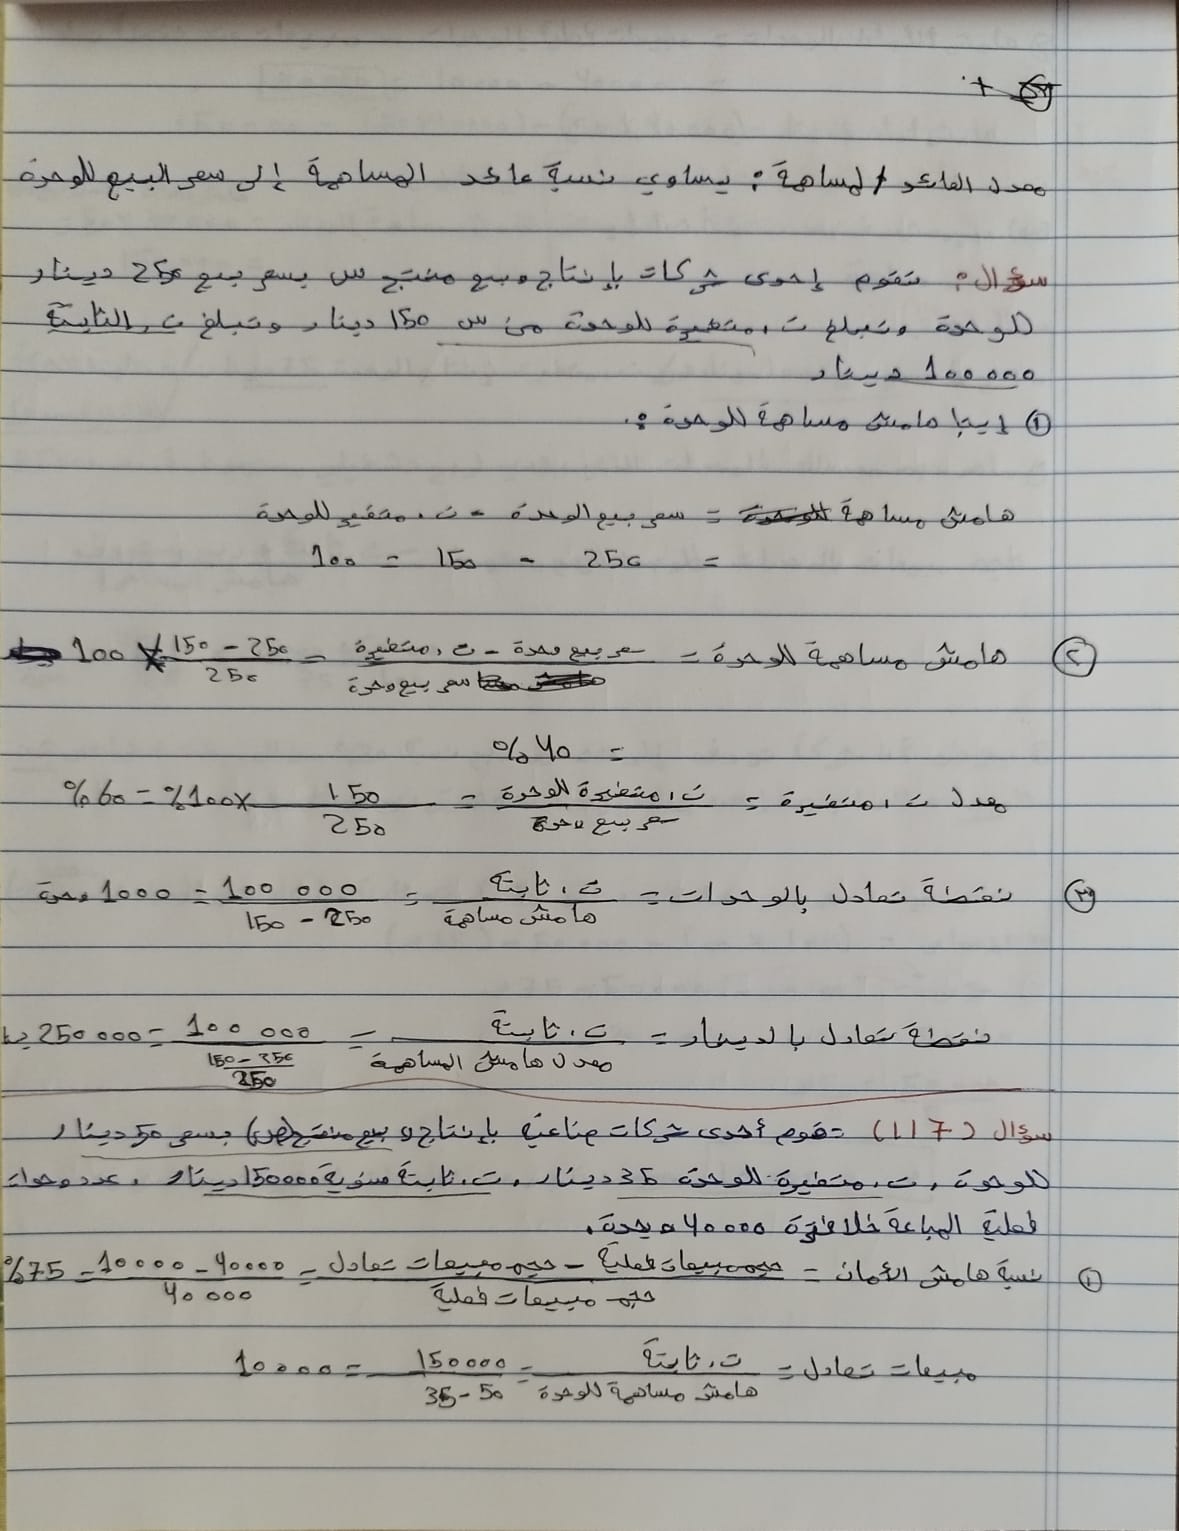 معدل العائد المساهمة : يساوي نسبة عائد المساهمة إلى سعر البيع للوحدة
سؤال : تقوم إحدى شركات بإنتاج وبيع منتج س بسعر بيع 250 دينار
للوحدة وتبلغ ت. متغيرة للوحدة من س 150 دينار وتبلغ ت. الثابتة
100000 دينار
① إيجا هامش مساهمة للوحدة :.
هامش مساهمة = سعر بيع الوحدة - ت. متغير للوحدة
= 250 - 150 = 100
② هامش مساهمة للوحدة = سعر بيع وحدة - ت. متغيرة / سعر بيع وحدة = 250 - 150 / 250 × 100
= 40 %
معدل ت. متغيرة = ت. متغيرة للوحدة / سعر بيع وحدة = 150 / 250 × 100% = 60 %
③ نقطة تعادل بالوحدات = ت. ثابتة / هامش مساهمة = 100 000 / 250 - 150 = 1000 وحدة
نقطة تعادل بالدينار = ت. ثابتة / معدل هامش المساهمة = 100 000 / 250 - 150 / 250 = 250 000
سؤال (117) تقوم أحدى شركات صناعية بإنتاج و بيع منتج (ص) بسعر 50 دينار
للوحدة , ت. متغيرة للوحدة 35 دينار , ت. ثابتة سنوية 150000 دينار , عدد وحدات
فعلية المباعة خلا فترة 40000 وحدة.
① نسبة هامش الأمان = حجم مبيعات فعلية - حجم مبيعات تعادل / حجم مبيعات فعلية = 40000 - 10000 / 40 000 = 75%
مبيعات تعادل = ت. ثابتة / هامش مساهمة للوحدة = 150000 / 50 - 35 = 10000